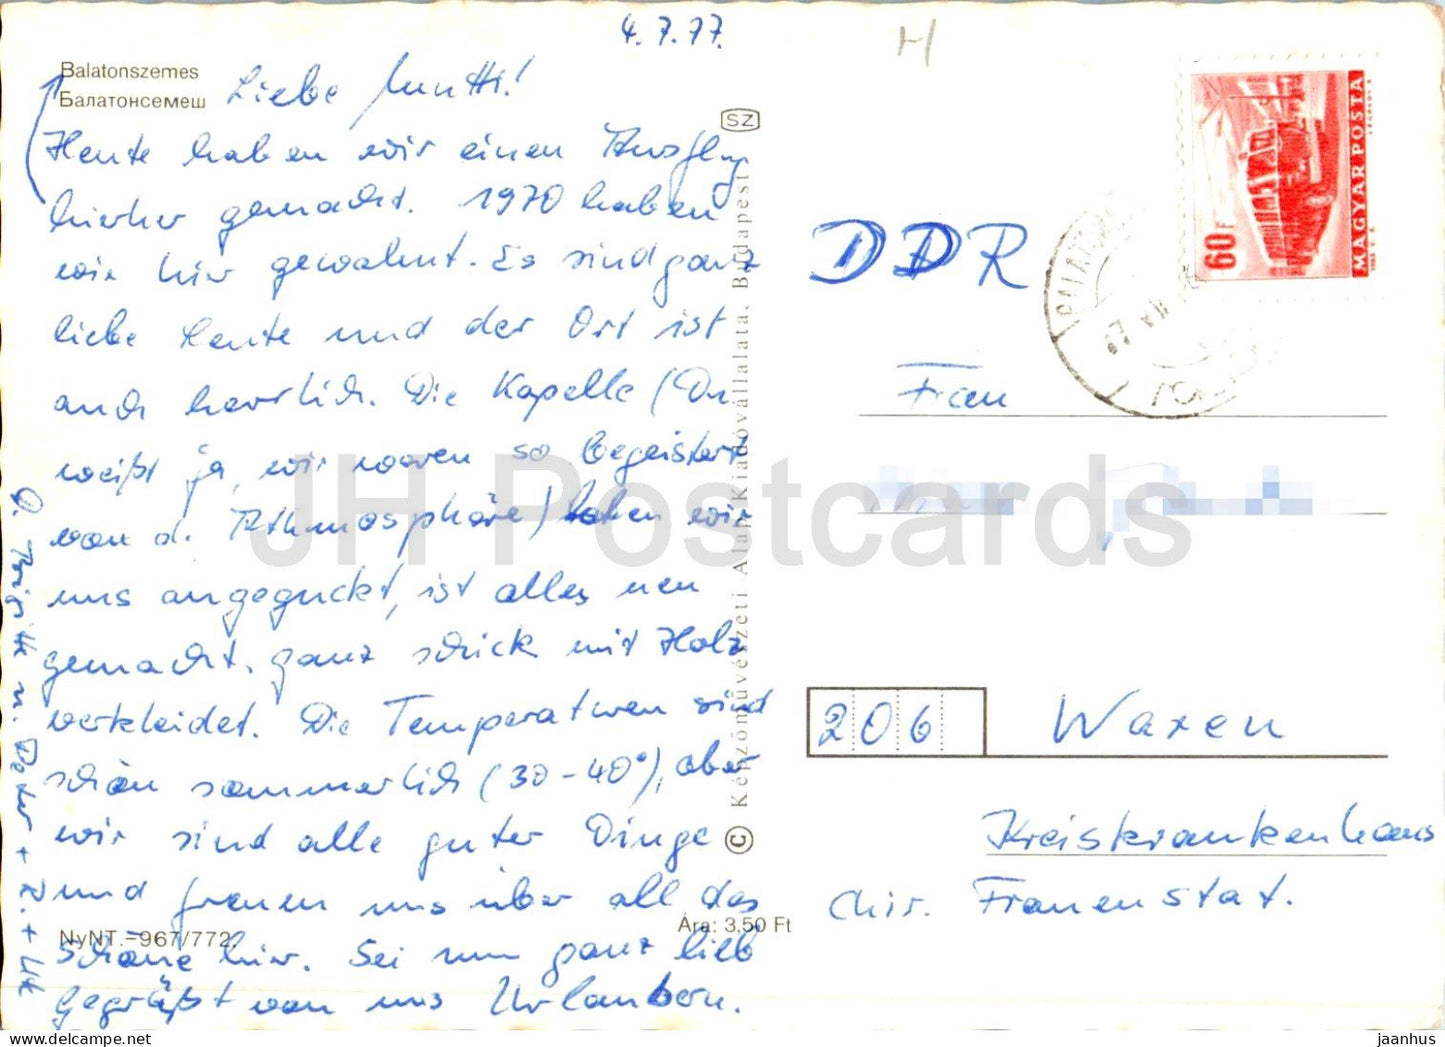 4.7.77.
H
Balatonszemes
Балатонсемеш
Liebe Mutti!
Heute haben wir einen Ausflug
hierher gemacht. 1970 haben
wir hier gewohnt. Es sind ganz
liebe Leute und der Ort ist
auch herrlich. Die Kapelle (Du
weißt ja, wir waren so begeistert
von d. Athmosphäre) haben wir
uns angeguckt, ist alles neu
gemacht. ganz schick mit Holz
verkleidet. Die Temperaturen sind
schön sommerlich (30-40°), aber
wir sind alle guter Dinge
und freuen uns über all das
schöne hier. Sei nun ganz lieb
gegrüßt von uns Urlaubern.
Brigitte u. Peter +
NyNT.-967/772.
Ára: 3,50 Ft
SZ
© Képzőművészeti Alap Kiadóvállalata, Budapest
60F
MAGYAR POSTA
DDR
Frau
206 Waren
Kreiskrankenhaus
Chir. Frauenstat.
JH Postcards
jaanhus
delcampe.net